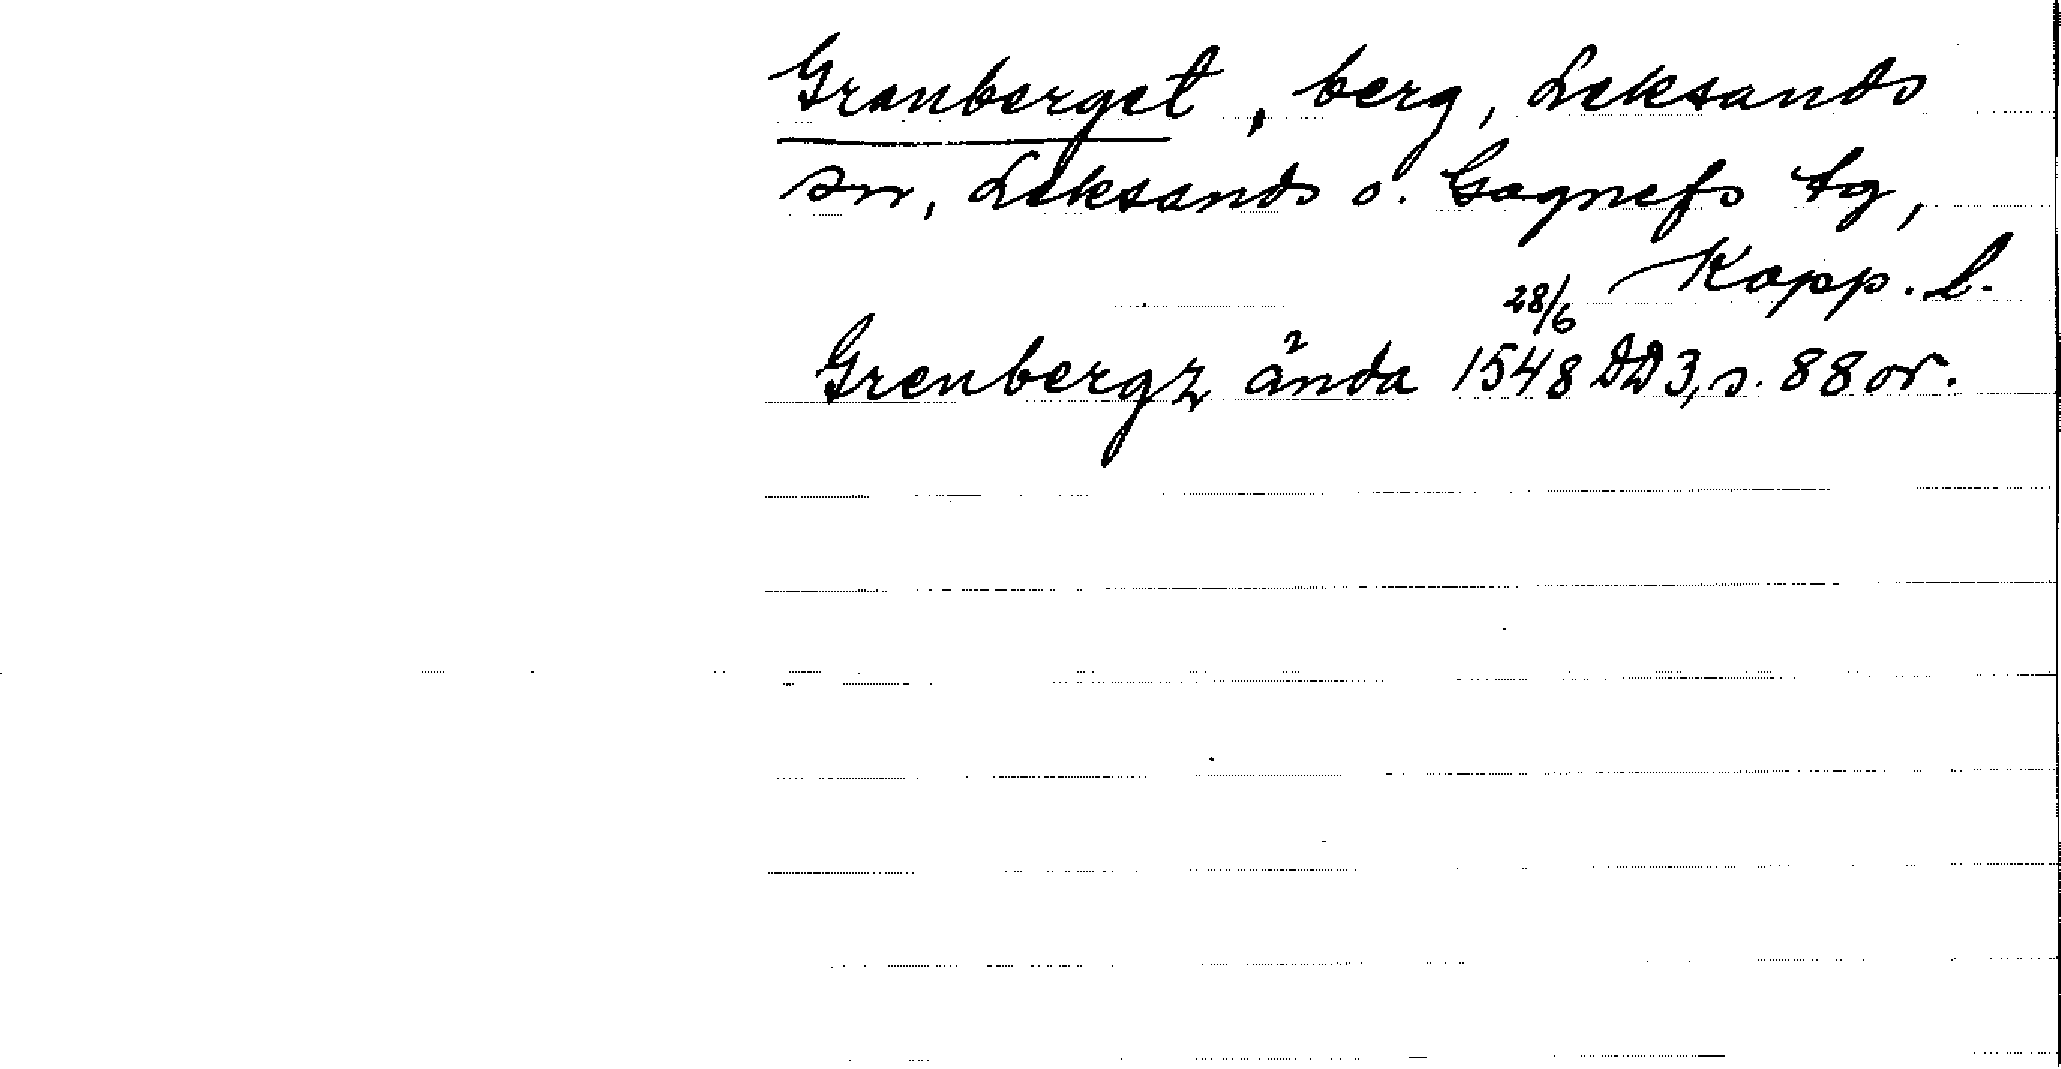 Granberget, berg, Leksands
sn, Leksands o. Gagnefs tg,
Kopp. l.
Grenbergz ända 28/6 1548 DD 3, s. 88 or.